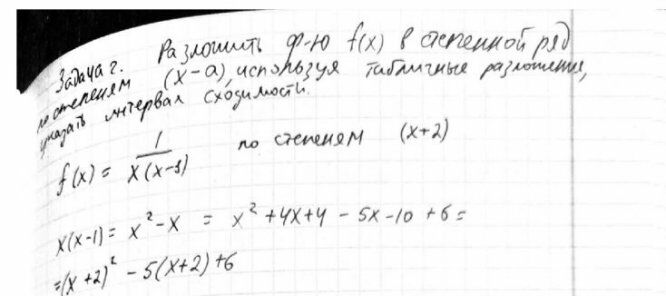 Задача 2. Разложить ф-ю f(x) в степенной ряд
по степеням (x-a), используя табличные разложения,
указать интервал сходимости.
f(x) = 1 / x(x-1) по степеням (x+2)
x(x-1) = x² - x = x² + 4x + 4 - 5x - 10 + 6 =
= (x+2)² - 5(x+2) + 6